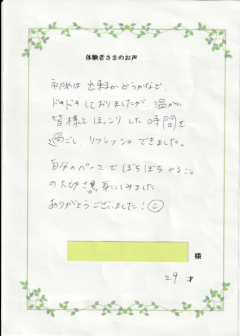 体験者さまのお声
初めは出来るかどうかなど、
ドキドキしておりましたが、温かい
皆様とほっこりした時間を
過ごし、リフレッシュできました。
自分のペースでぼちぼちやること
の大切さが身にしみました
ありがとうございました:)
様
29才